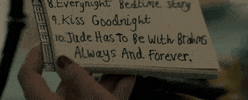 8. Everynight Bedtime Story
9. Kiss Goodnight
10. Jude Has To Be With Brahms
Always And Forever.